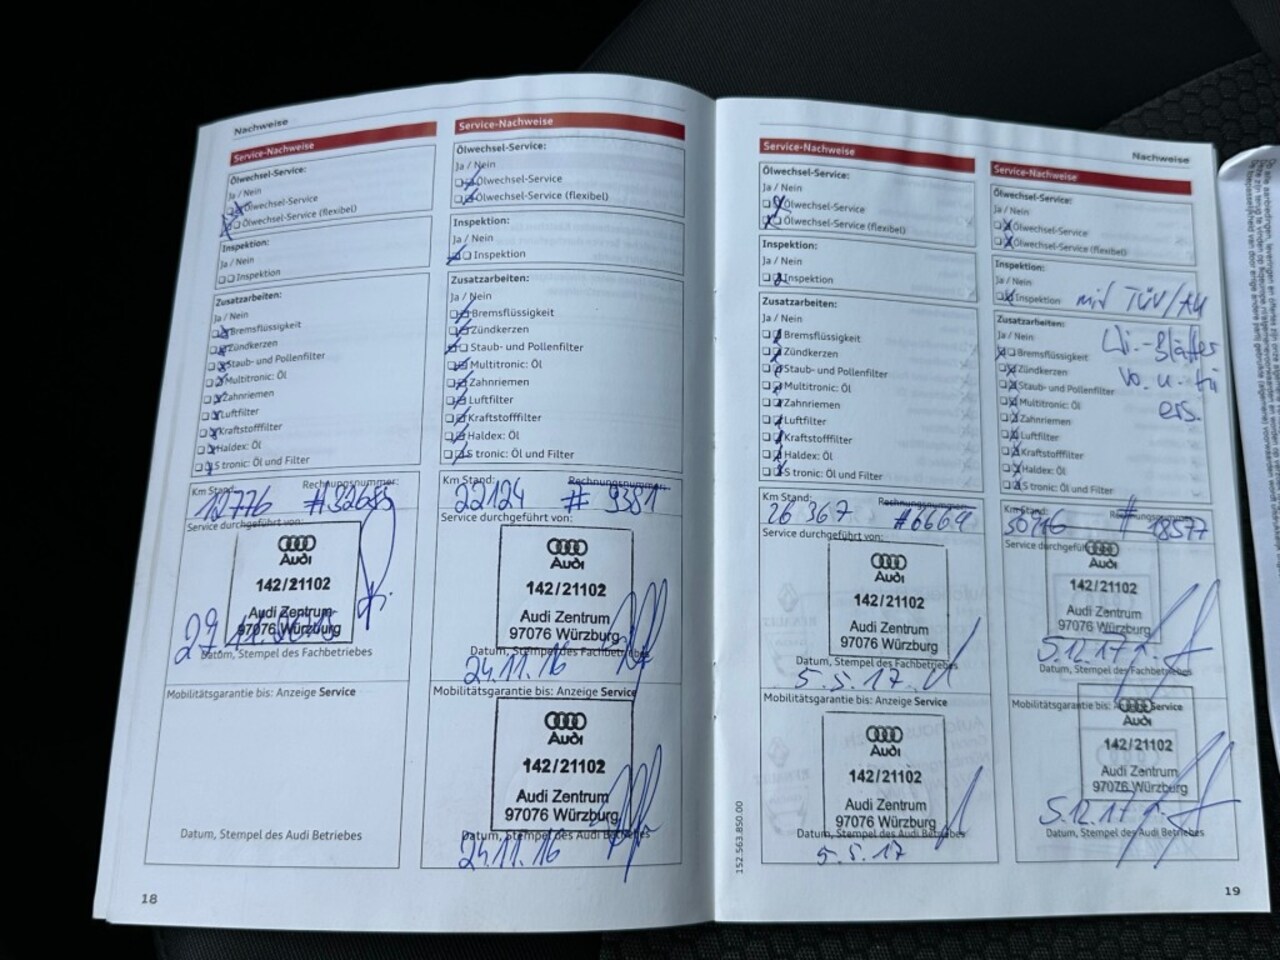 Nachweise
Service-Nachweis
Ölwechsel-Service:
Ja / Nein
Ölwechsel-Service
Ölwechsel-Service (flexibel)
Inspektion:
Ja / Nein
Inspektion
Zusatzarbeiten:
Ja / Nein
Bremsflüssigkeit
Zündkerzen
Staub- und Pollenfilter
Multitronic: Öl
Zahnriemen
Luftfilter
Kraftstofffilter
Haldex: Öl
S tronic: Öl und Filter
Km Stand: Rechnungsnummer:
12776 #32685
Service durchgeführt von:
Audi
142/21102
Audi Zentrum
97076 Würzburg
Datum, Stempel des Fachbetriebes
Mobilitätsgarantie bis: Anzeige Service
Datum, Stempel des Audi Betriebes
18
Service-Nachweise
Ölwechsel-Service:
Ja / Nein
Ölwechsel-Service
Ölwechsel-Service (flexibel)
Inspektion:
Ja / Nein
Inspektion
Zusatzarbeiten:
Ja / Nein
Bremsflüssigkeit
Zündkerzen
Staub- und Pollenfilter
Multitronic: Öl
Zahnriemen
Luftfilter
Kraftstofffilter
Haldex: Öl
S tronic: Öl und Filter
Km Stand: Rechnungsnummer:
22124 # 9381
Service durchgeführt von:
Audi
142/21102
Audi Zentrum
97076 Würzburg
Datum, Stempel des Fachbetriebes
24.11.16
Mobilitätsgarantie bis: Anzeige Service
Audi
142/21102
Audi Zentrum
97076 Würzburg
Datum, Stempel des Audi Betriebes
24.11.16
Service-Nachweise
Ölwechsel-Service:
Ja / Nein
Ölwechsel-Service
Ölwechsel-Service (flexibel)
Inspektion:
Ja / Nein
Inspektion
Zusatzarbeiten:
Ja / Nein
Bremsflüssigkeit
Zündkerzen
Staub- und Pollenfilter
Multitronic: Öl
Zahnriemen
Luftfilter
Kraftstofffilter
Haldex: Öl
S tronic: Öl und Filter
Km Stand: Rechnungsnummer:
26 367 #6669
Service durchgeführt von:
Audi
142/21102
Audi Zentrum
97076 Würzburg
Datum, Stempel des Fachbetriebes
5.5.17
Mobilitätsgarantie bis: Anzeige Service
Audi
142/21102
Audi Zentrum
97076 Würzburg
Datum, Stempel des Audi Betriebes
5.5.17
152.563.850.00
Nachweise
Service-Nachweise
Ölwechsel-Service:
Ja / Nein
Ölwechsel-Service
Ölwechsel-Service (flexibel)
Inspektion:
Ja / Nein
Inspektion mit TÜV/AU
Zusatzarbeiten:
Ja / Nein
Bremsflüssigkeit Wi.-Blätter
Zündkerzen vo. u. hi
Staub- und Pollenfilter
Multitronic: Öl ers.
Zahnriemen
Luftfilter
Kraftstofffilter
Haldex: Öl
S tronic: Öl und Filter
Km Stand:
30716 # 18577
Service durchgeführt
Audi
142/21102
Audi Zentrum
97076 Würzburg
5.12.17
Datum, Stempel des Fachbetriebes
Mobilitätsgarantie bis: Service
Audi
142/21102
Audi Zentrum
97076 Würzburg
5.12.17
Datum, Stempel des Audi Betriebes
19